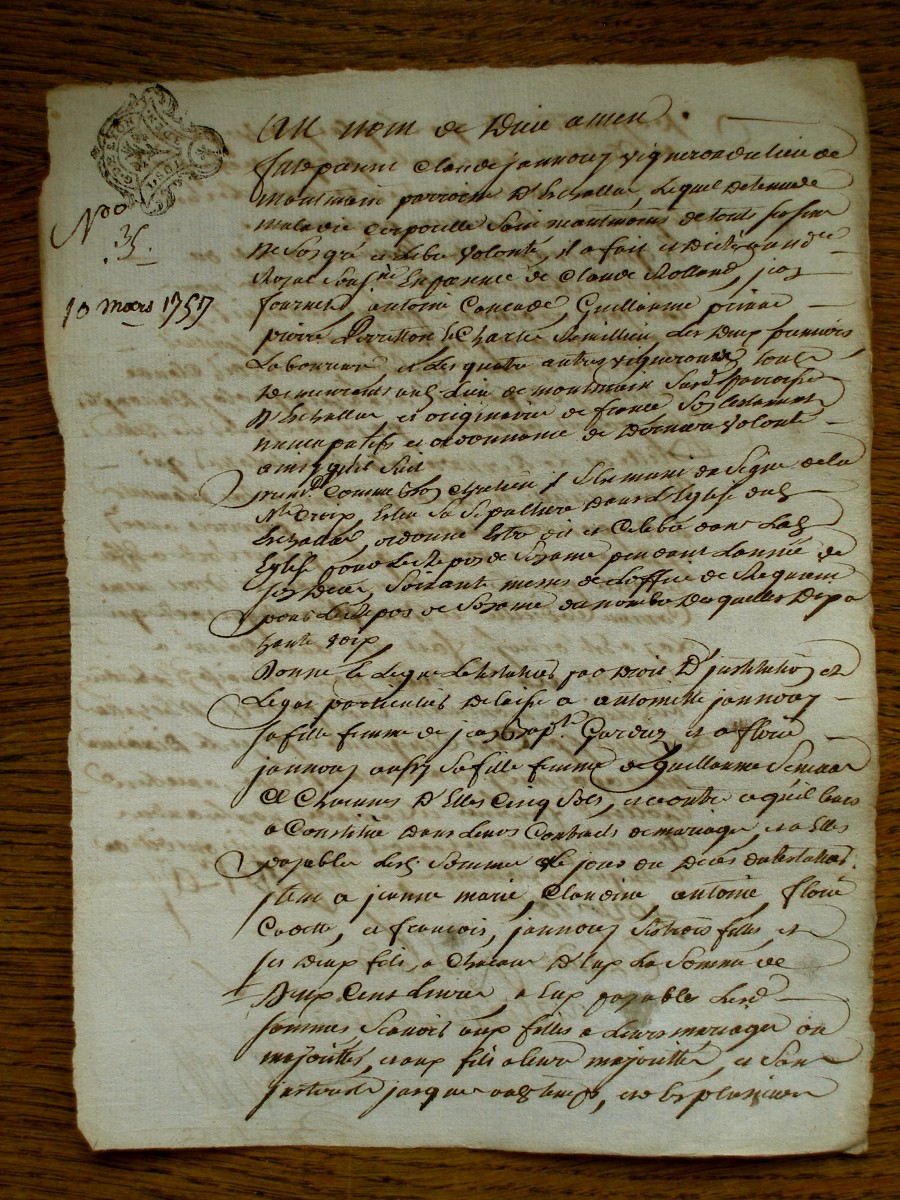 N.do
35.
10 mars 1757
Au nom de Dieu amen
fut present Claude jannouz vigneron du lieu de
montmain parroisse D'Echallas, Lequel detenu de
maladie corporelle Sain neantmoins de touts ses sens
De Son gré et libre volonté, il a fait et Dicté
Royal En presence de Claude Rolland, jean
fournel, antoine Guillaume
pierre Perretton & Charle Remillieu Les Deux premiers
Laboureurs, et Les quatre autres vignerons, touts
Demeurants aud. Lieu de montmain Susd. parroisse
D'Echallas et originaire de france Son testament
nuncupatif et ordonnance de Derniere volonté
ainsy qu'il Suit
prem.t Comme bon chretien il S'Est muni du Signe de la
S.te Croix, Eslu Sa Sepulture dans L'Eglise dud.
Echallas, ordonne Estre dit et Celebré dans Lad.
Eglise pour Le Repos de Son ame pendant L'année de
son Decès, Soixante messes de L'office de Requiem
pour Le Repos de Son ame du nombre Desquelles
haute voix
Donne & Legue Le testateur par Droit D'institution et
Legat particulier Delaisse a antoinette jannouz
sa fille femme de jean Bap.te et a florie
jannouz aussy sa fille femme de Guillaume
a Chacunes D'Elles Cinq Sols, et outre ce qu'il leurs
a Constitué Dans Leurs Contracts de mariage, et a Elles
payable Lesd. Sommes Le jour du Decès du testateur.
jtem a jeanne marie, Claudine, antoine, florie
et françois, jannouz Ses trois filles, et
ses Deux fils, a Chacun D'Eux La Somme de
Deux Cent Livres, a Eux payable Lesd.
sommes Scavoir aux filles a Leurs mariages ou
majorités, et aux fils a leur majorité, et Sans
interests jusques aud. temps, et de plusieurs